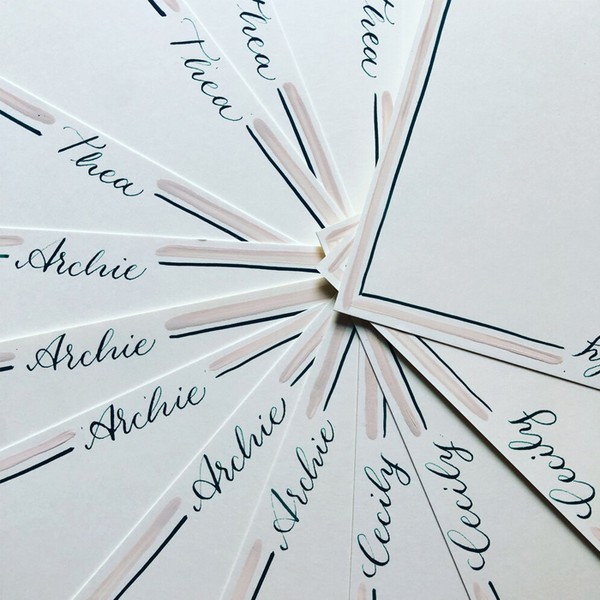 Thea
Thea
Thea
Thea
Archie
Archie
Archie
Archie
Archie
Cecily
Cecily
Cecily